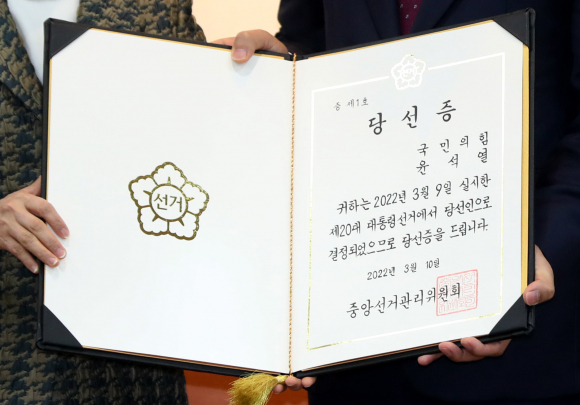 선거
증 제1호
당선증
국민의힘
윤석열
귀하는 2022년 3월 9일 실시한
제20대 대통령선거에서 당선인으로
결정되었으므로 당선증을 드립니다.
2022년 3월 10일
중앙선거관리위원회